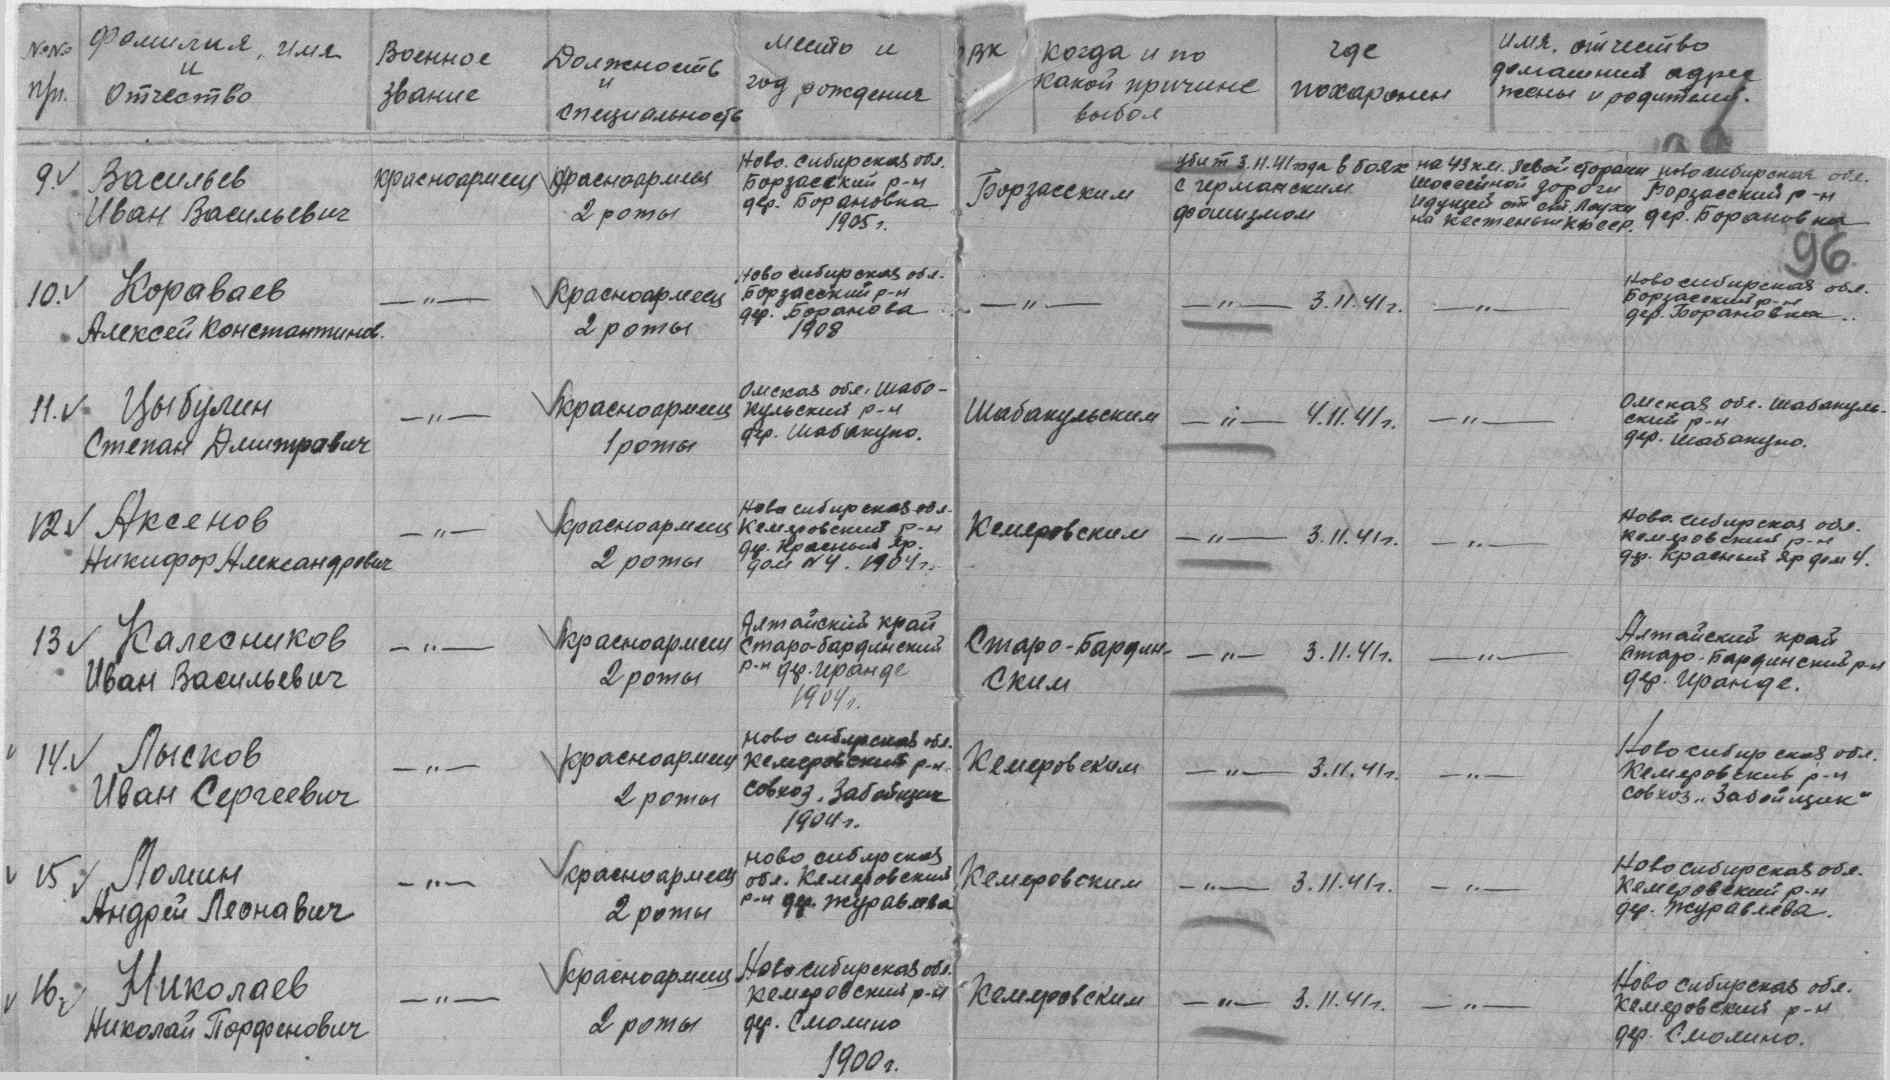 №№ п/п.
Фамилия, имя
и
Отчество
Военное
звание
Должность
и
специальность
место и
год рождения
РВК
Когда и по
какой причине
выбол
где
похоронен
имя, отчество
домашний адрес
жены и родителей.
9.
Васильев
Иван Васильевич
красноармеец
Красноармеец
2 роты
Ново. сибирская обл.
Борзасский р-н
дер. Борановка
1905 г.
Борзасским
убит 3.11.41 года в боях
с германским
фошизмом
на 43 км. левой стороны
шоссейной дороги
идущей от ст. Лоухи
на Кестеньги КФССР.
новосибирская обл.
Борзасский р-н
дер. Борановка
96
10.
Кораваев
Алексей Константинов.
—"—
Красноармеец
2 роты
Ново сибирская обл.
Борзасский р-н
дер. Боранова
1908
—"—
—"— 3.11.41г.
—"—
Новосибирская обл.
Борзасский р-н
дер. Борановка
11.
Цыбулин
Степан Дмитравич
—"—
Красноармеец
1 роты
Омская обл. Шабо-
кульский р-н
дер. Шабакуно.
Шабакульским
—"— 4.11.41г.
—"—
Омская обл. Шабакуль-
ский р-н
дер. Шабакуно.
12.
Аксенов
Никифор Александрович
—"—
Красноармеец
2 роты
Ново сибирская обл.
Кемеровский р-н
др. Красный Яр.
дом №4. 1904г.
Кемеровским
—"— 3.11.41г.
—"—
Ново. сибирская обл.
Кемеровский р-н
др. Красный Яр дом 4.
13
Калесников
Иван Васильевич
—"—
Красноармеец
2 роты
Алтайский край
Старо-бардинский
р-н др. Иранде
1904г.
Старо-Бардин-
ским
—"— 3.11.41г.
—"—
Алтайский край
Старо-Бардинский р-н
дер. Иранде.
14.
Лысков
Иван Сергеевич
—"—
Красноармеец
2 роты
Ново сибирская обл.
Кемеровский р-н.
совхоз „Забойщик
1904г.
Кемеровским
—"— 3.11.41г.
—"—
Ново сибирская обл.
Кемеровский р-н
совхоз „Забойщик"
15
Ломин
Андрей Леонавич
—"—
Красноармеец
2 роты
Ново сибирская
обл. Кемеровский
р-н дер. Журавлева
Кемеровским
—"— 3.11.41г.
—"—
Ново сибирская обл.
Кемеровский р-н
дер. Журавлева.
16.
Николаев
Николай Порфенович
—"—
Красноармеец
2 роты
Ново сибирская обл.
Кемеровский р-н
дер. Смолино
1900г.
Кемеровским
—"— 3.11.41г.
—"—
Ново сибирская обл.
Кемеровский р-н
дер. Смолино.